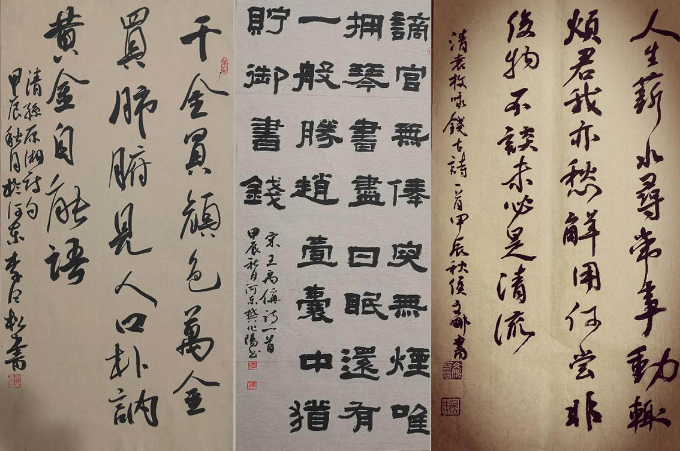 千金買顔色萬金
買肺腑見人口朴訥
黄金自能語
清孫原湘詩句
甲辰秋月於河東李松書
謫官無俸突無煙唯
擁琴書盡日眠還有
一般勝趙壹囊中猶
貯御書錢
宋王禹偁詩一首
甲辰秋月河東樊化陽書
人生薪水尋常事動輒
煩君我亦愁解用何嘗非
俊物不談未必是清流
清袁枚咏錢詩一首甲辰秋侯文書